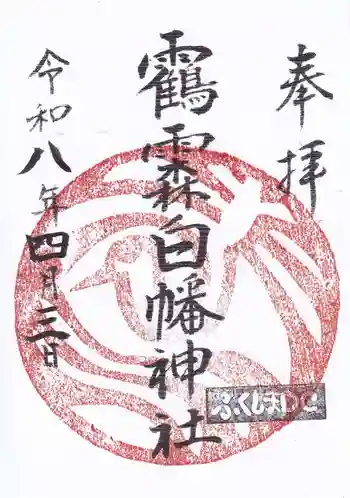 奉拝
鶴霖白幡神社
令和八年四月三日
ふくしまDC